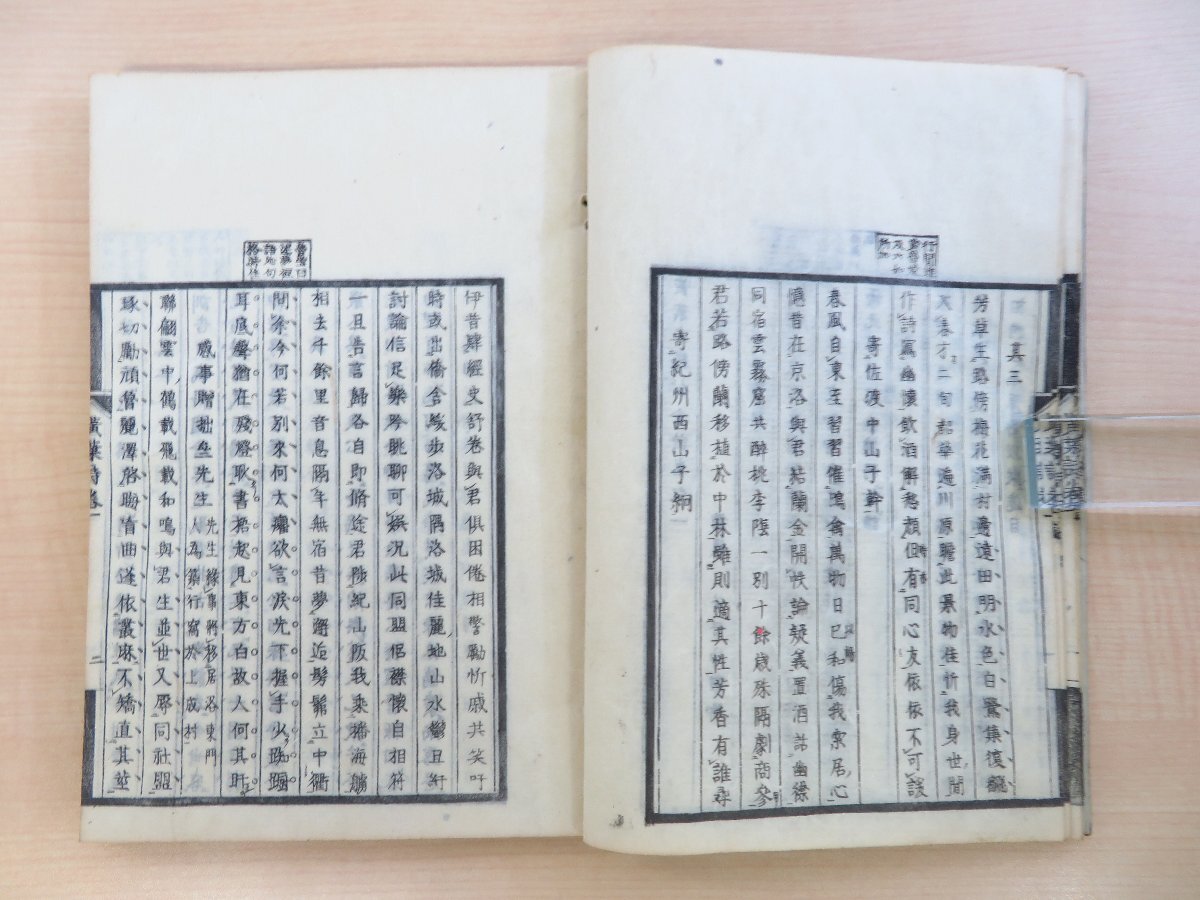 其三
芳草生路傍梅花滿村邊遠田明水色白鷺集復飜
天春才二旬韶華遍川原瞻此景物佳忻我身世間
作詩寫幽懷飲酒解愁顏但有同心友依依不可諼
寄佐渡中山子幹
春風自東至習習催鳴禽萬物日已和傷我索居心
憶昔在京洛與君結蘭金開帙論疑義置酒話幽襟
同宿雲霧窟共醉桃李陰一別十餘歲殊隔劇商參
君若路傍蘭移植於中林雖則適其性芳香有誰尋
寄紀州西山子絅
伊昔肄經史舒卷與君俱困倦相警勵忻戚共笑吁
時或出僑舍緩步洛城隅洛城佳麗地山水鬱且紆
討論信足樂吟眺聊可娛況此同盟侶襟懷自相符
一旦告言歸各自即脩途君陟紀山阪我乘播海艫
相去千餘里音息隔年無宿昔夢邂逅髣髴立中衢
問余今何若別來何太癯欲言淚先下握手以踟躕
耳底聲猶在殘燈耿書梧起見東方白故人何其盱
感事贈拙魚先生
先生緣事將移居洛東門
人為築行窩於上成村
聯翩雲中鶴載飛載和鳴與君生並世又辱同社盟
琢切勵頑魯麗澤啓盼盲曲蓬依叢麻不矯直其莖
黃葉詩卷一
二